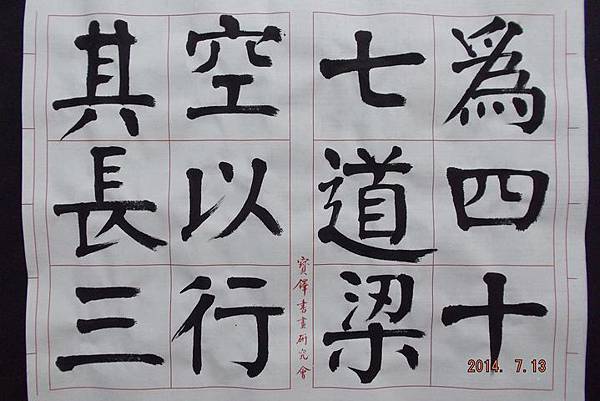 為四十
七道梁
空以行
其長三
寶鐸書畫研究會
2014. 7.13